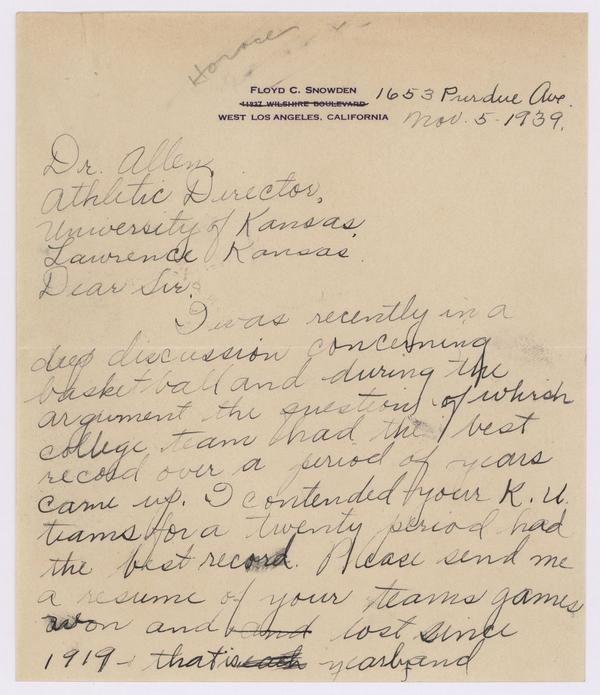 Horace
FLOYD C. SNOWDEN
11837 WILSHIRE BOULEVARD 1653 Purdue Ave.
WEST LOS ANGELES, CALIFORNIA Nov. 5-1939.
Dr. Allen,
Athletic Director,
University of Kansas,
Lawrence Kansas.
Dear Sir:
I was recently in a
deep discussion concerning
basketball and during the
argument the question of which
college team had the best
record over a period of years
came up. I contended your K. U.
teams for a twenty period had
the best record. Please send me
a resume of your teams games
won and and lost since
1919 - that is each year and